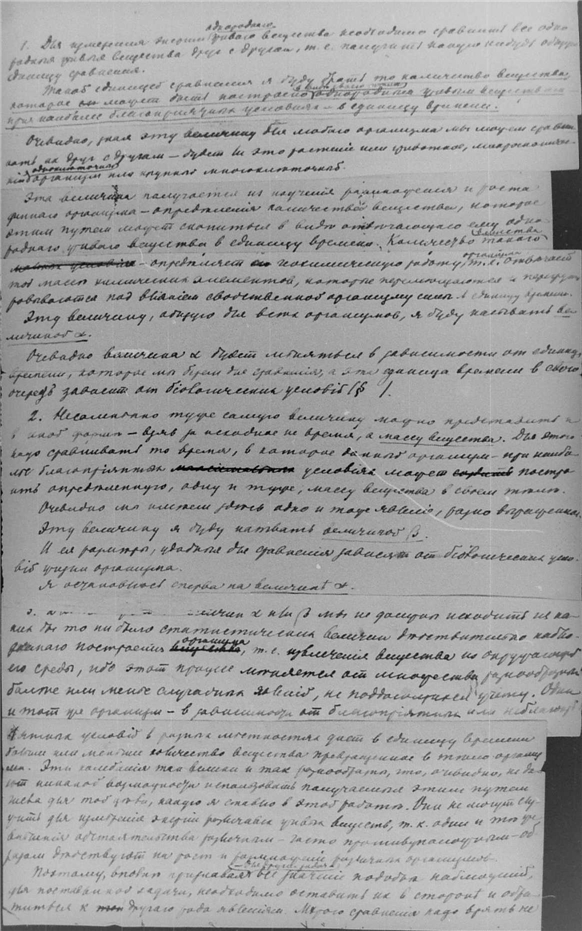 однородного
1. Для измерения энергии живого вещества необходимо сравнить все одно-
родныя живыя вещества друг с другом, т.е. получить какую нибудь общую
единицу сравнения.
Такой единицей сравнения я буду брать то количество вещества,
которое может быть построено однородным живым веществом
при наиболее благоприятных условиях – в единицу времени.
Очевидно, зная эту величину для любого организма мы можем сравни-
вать их друг с другом – будет ли это растение или животное, микроскопичес-
одноклеточный
кий организм или крупный многоклеточный.
Эта величина получается из изучения размножения и роста
данного организма – определения количества вещества, которое
этим путем может скопиться в виде отвечающего ему одно-
вещества
родного живого вещества в единицу времени. Количество такого
организма
– определяет геохимическую работу, т.е. отвечает
той массе химических элементов, которые перемещаются и перераб
под влиянием свойственной организму силы в единицу времени.
Эту величину, общую для всех организмов, я буду называть ве-
личиной α.
Очевидно величина α будет меняться в зависимости от единицы
времени, которые мы берем для сравнения, а эта единица времени в свою
очередь зависит от биологических условий (§ ).
2. Несомненно ту же самую величину можно представить и
в иной форме – взяв за исходное не время, а массу вещества. Для этого
надо сравнивать то время, в которое данный организм – при наибо-
лее благоприятных условиях может постро-
ить определенную, одну и ту же, массу вещества в своем теле.
Очевидно мы имеем здесь одно и то же явление, разно выраженное.
Эту величину я буду называть величиной β.
И ея размеры, удобные для сравнения зависят от биологических усло-
вий жизни организма.
Я остановлюсь сперва на величине α.
3. величин α или β мы не должны исходить из ка-
ких бы то ни было статистических величин действительно наблю-
организма
даемого построения, т.е. извлечения вещества из окружающей
его среды, ибо этот процесс меняется от множества разнообразных
более или менее случайных явлений, не поддающихся учету. Один
и тот же организм – в зависимости от благоприятных или неблагопр
иятных условий в разных местностях даст в единицу времени
большее или меньшее количество вещества превращенное в тело организ-
ма. Эти колебания так велики и так разнообразны, что, очевидно, не да-
ют никакой возможности использовать получаемые этим путем
числа для той цели, какую я ставлю в этой работе. Они не могут слу-
жить для измерения энергии различных живых веществ, т.к. одни и те же
внешния обстоятельства различным – часто противуположным – об-
разом действуют на рост и размножение различных организмов.
Поэтому, вполне признавая все значение подобных наблюдений,
для поставленной задачи, необходимо оставить их в стороне и обра-
титься к другого рода явлениям. Мерою сравнения надо взять не